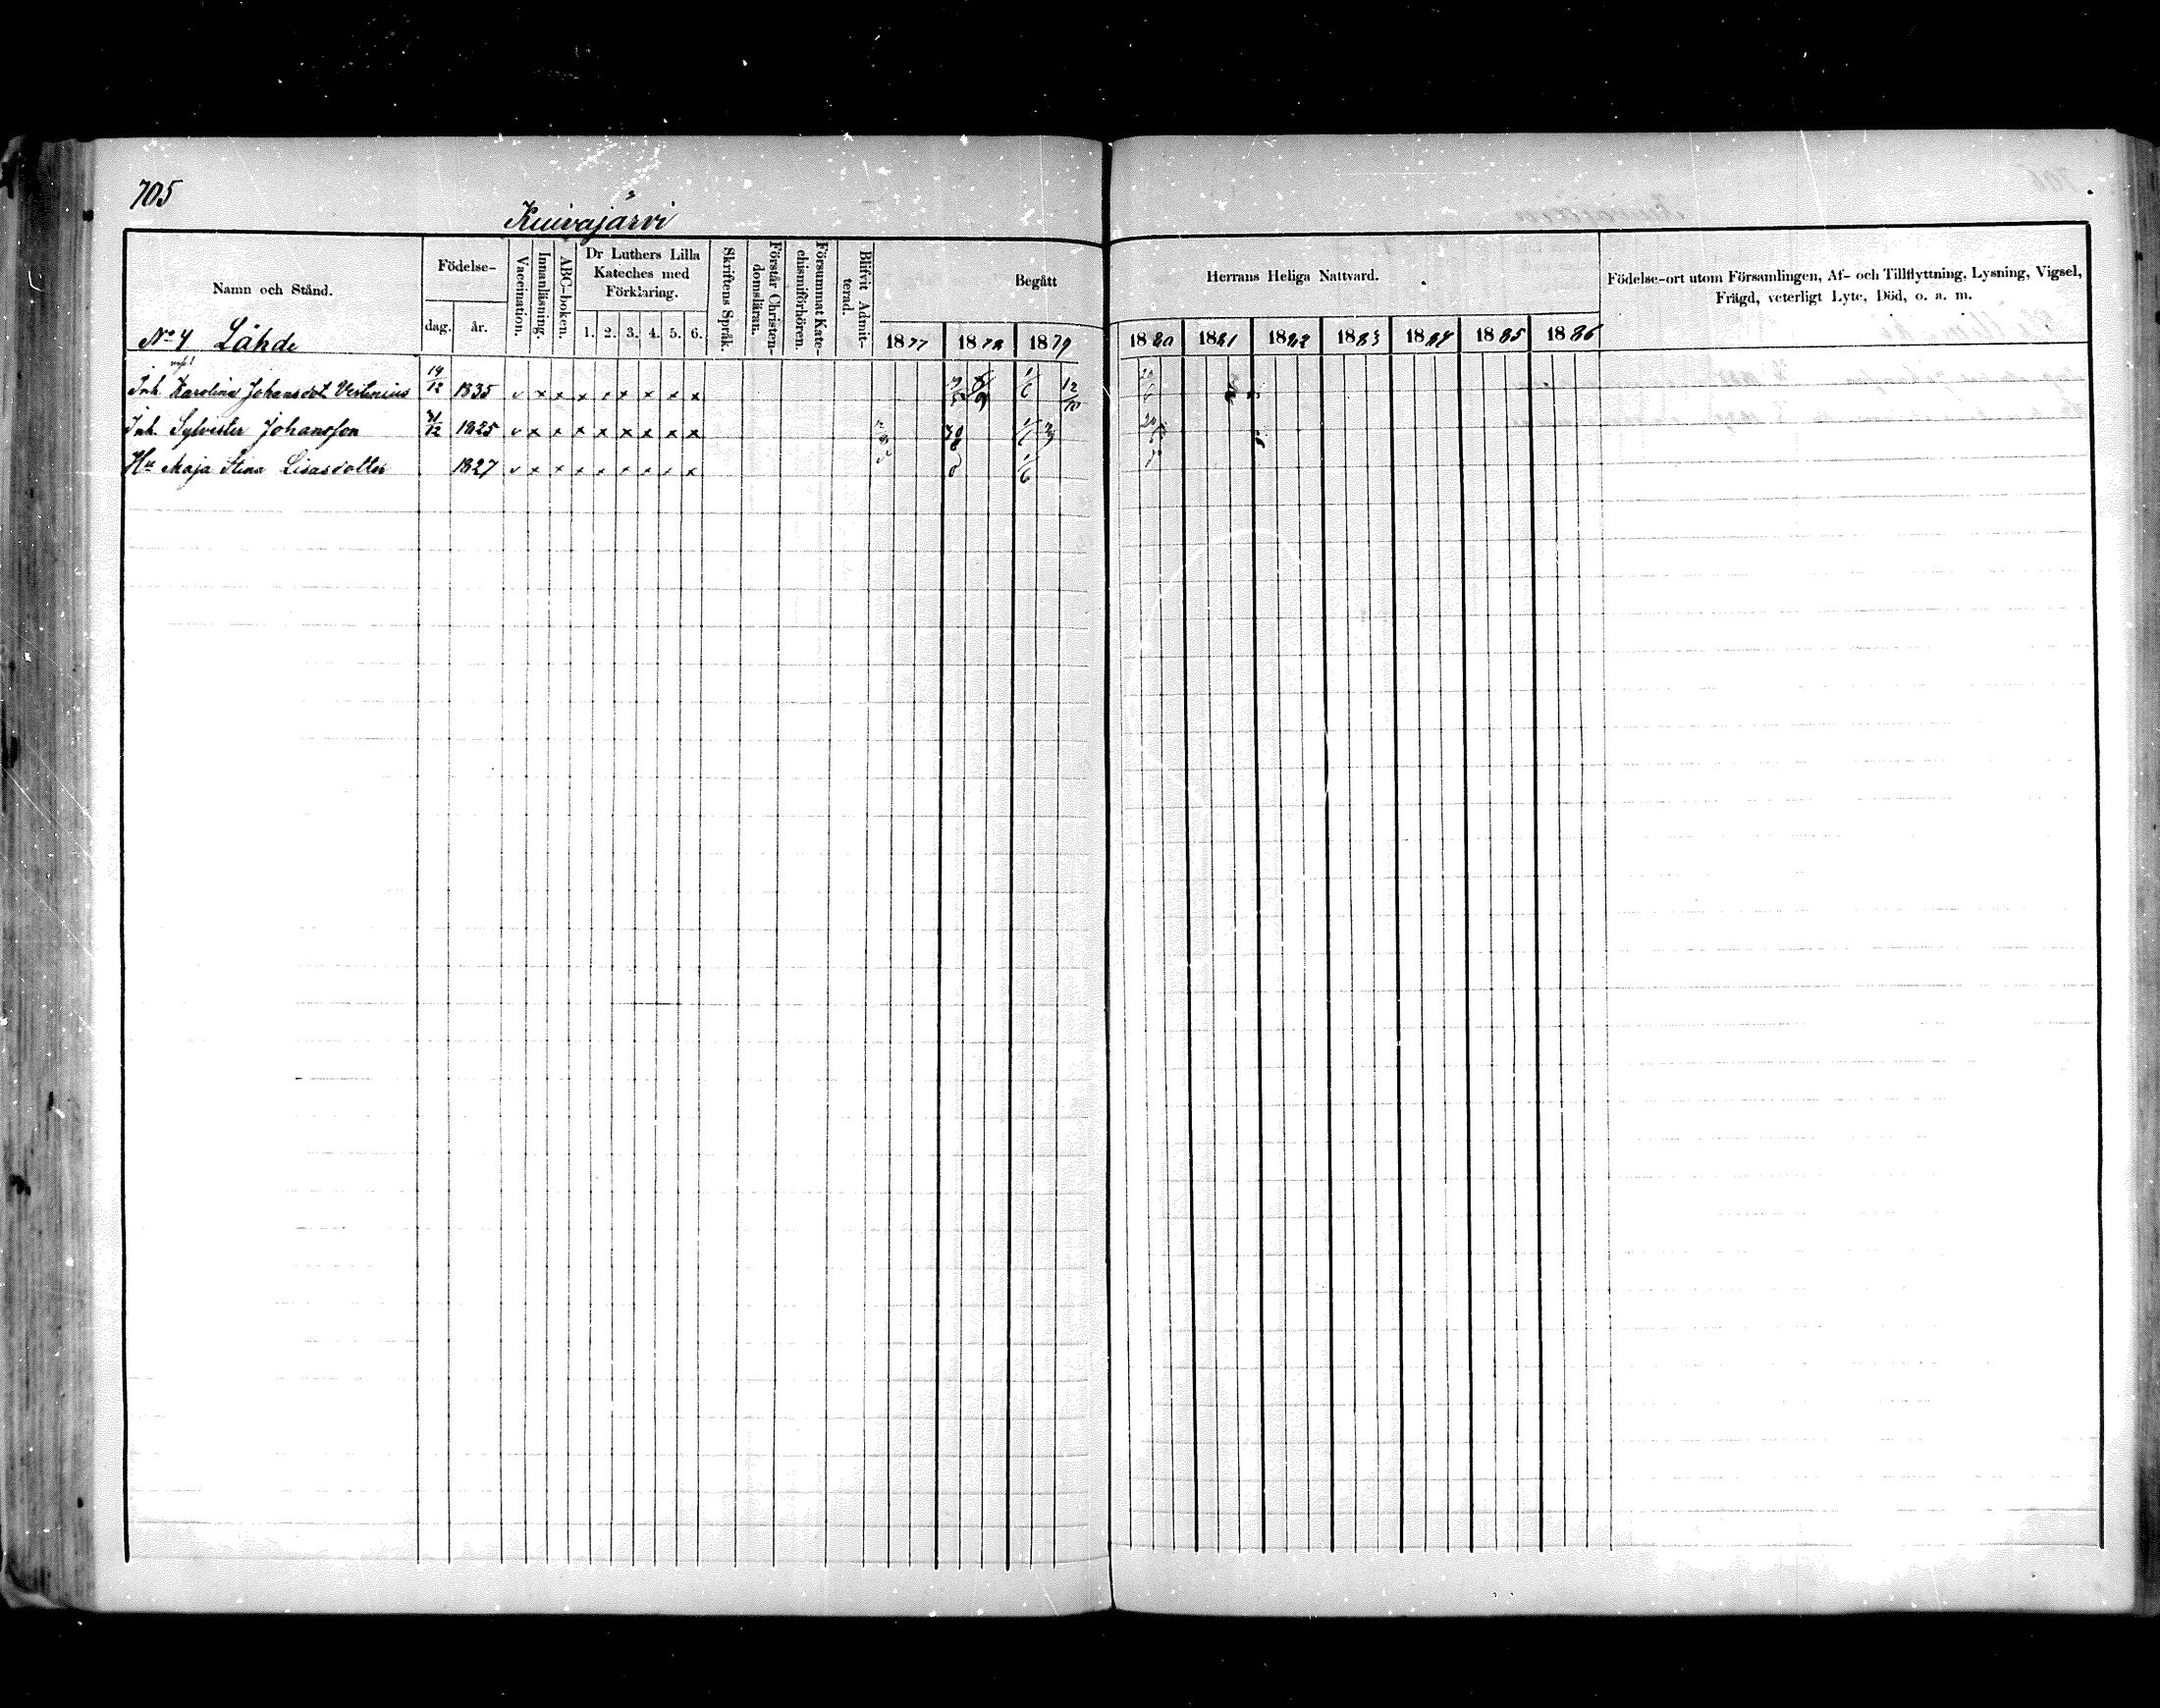 705
Kuivajärvi
Namn och Stånd.
Födelse-
dag.
år.
Vaccination.
Innanläsning.
ABC-boken.
Dr Luthers Lilla
Kateches med
Förklaring.
1. 2. 3. 4. 5. 6.
Skriftens Språk.
Förstår Christen-
domsläran.
Försummat Kate-
chismiförhören.
Blifvit Admit-
terad.
Begått
Herrans Heliga Nattvard.
1877 1878 1879
1880 1881 1882 1883 1884 1885 1886
Födelse-ort utom Församlingen, Af- och Tillflyttning, Lysning, Vigsel,
Frägd, veterligt Lyte, Död, o. a. m.
No 4 Lähde
Inh. Karolina Johansdot 14/12 1835 v x x x x x x x x 1/6 12/10
Inh. Sylvester Johansson 1825 v x x x x x x x x
Hu Maja Stina Lisasdotter 1827 v x x x x x x x x 1/6